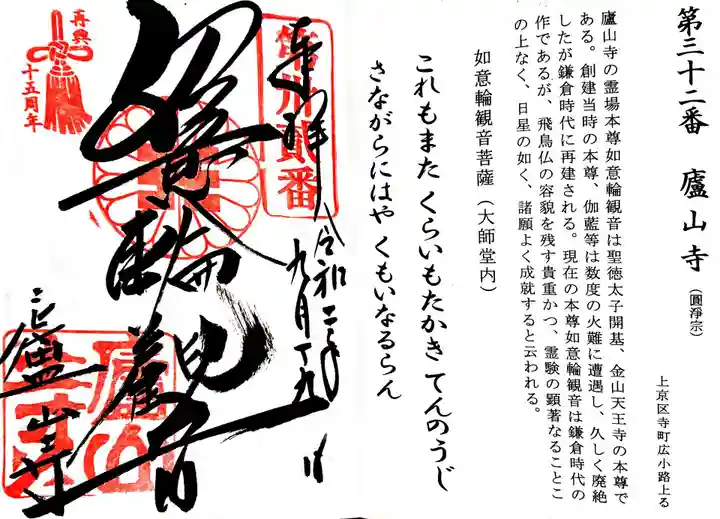 第三十二番 廬山寺 (圓淨宗)
上京区寺町広小路上る
廬山寺の霊場本尊如意輪観音は聖徳太子開基、金山天王寺の本尊で
ある。創建当時の本尊、伽藍等は数度の火難に遭遇し、久しく廃絶
したが鎌倉時代に再建される。現在の本尊如意輪観音は鎌倉時代の
作であるが、飛鳥仏の容貌を残す貴重かつ、霊験の顕著なることこ
の上なく、日星の如く、諸願よく成就すると云われる。
如意輪観音菩薩(大師堂内)
これもまた くらいもたかき てんのうじ
さながらにはや くもいなるらん
奉拝
令和二年
九月十九日
洛陽
第貳番
再興
十五周年
廬山寺